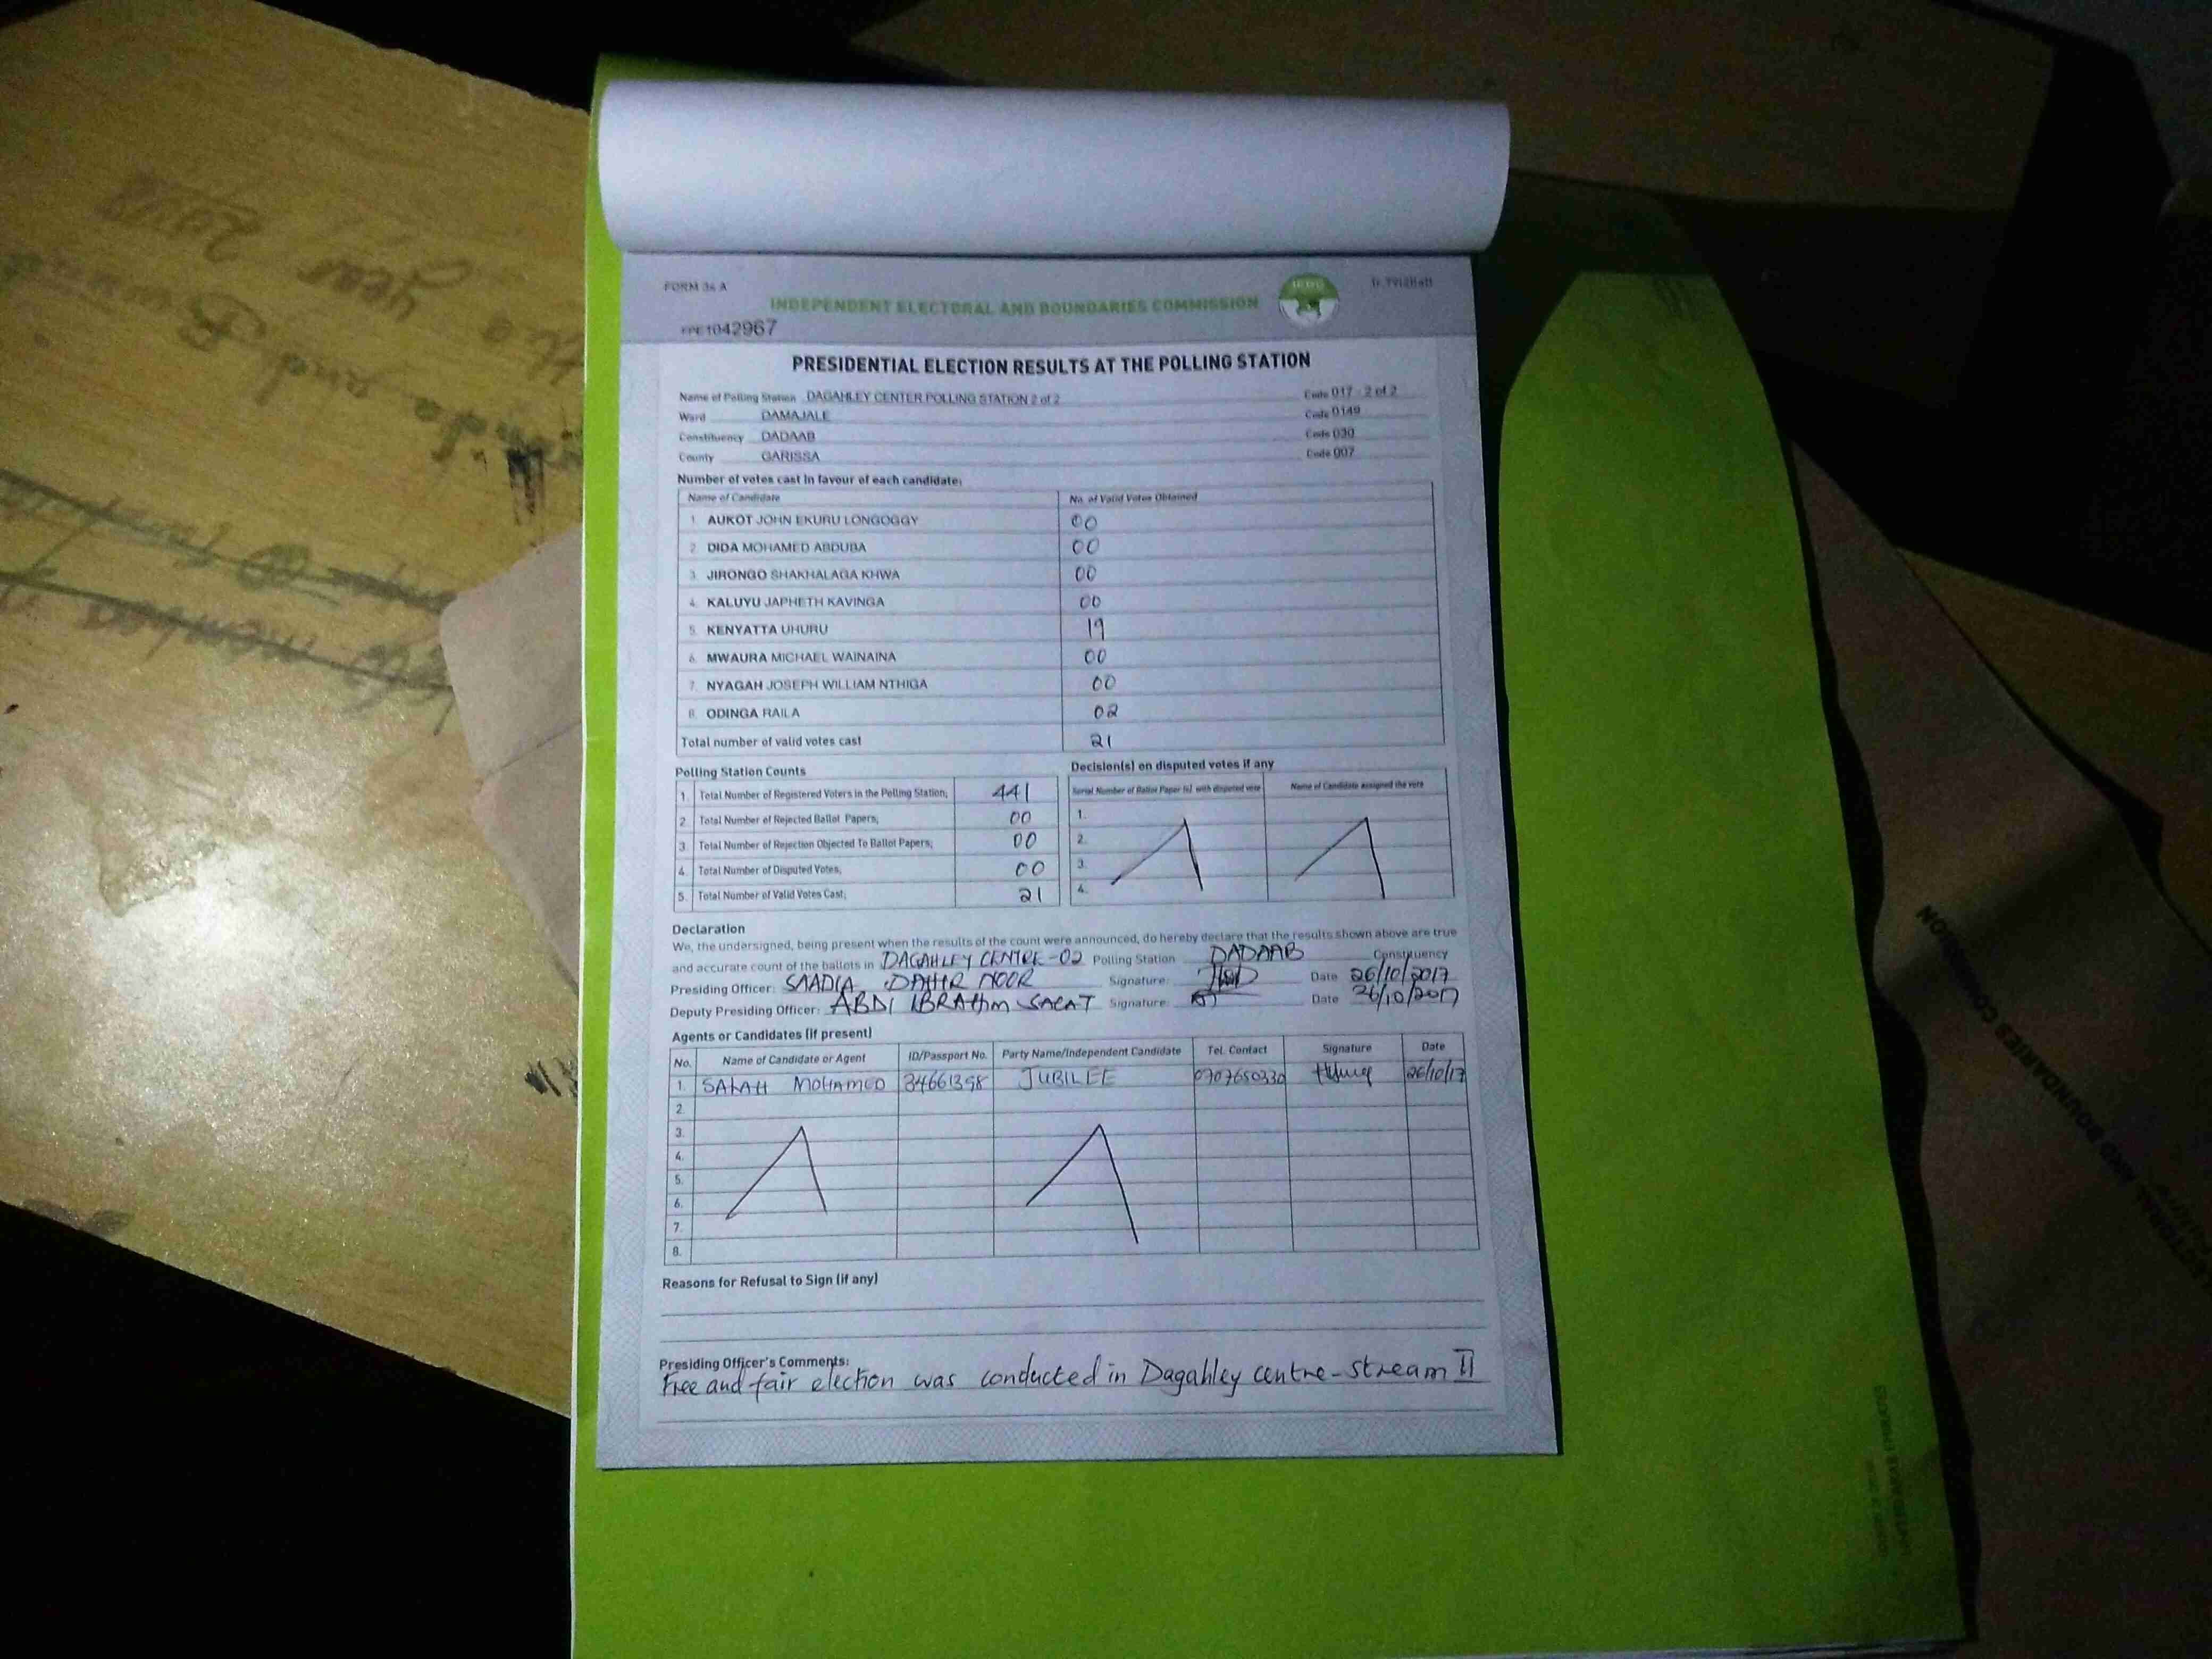 FORM 34 A
INDEPENDENT ELECTORAL AND BOUNDARIES COMMISSION
IEBC
1042967
PRESIDENTIAL ELECTION RESULTS AT THE POLLING STATION
Name of Polling Station DAGAHLEY CENTER POLLING STATION 2 of 2 Code 017 - 2 of 2
Ward DAMAJALE Code 0149
Constituency DADAAB Code 030
County GARISSA Code 007
Number of votes cast in favour of each candidate:
Name of Candidate No. of Valid Votes Obtained
1. AUKOT JOHN EKURU LONGOGGY 00
2. DIDA MOHAMED ABDUBA 00
3. JIRONGO SHAKHALAGA KHWA 00
4. KALUYU JAPHETH KAVINGA 00
5. KENYATTA UHURU 19
6. MWAURA MICHAEL WAINAINA 00
7. NYAGAH JOSEPH WILLIAM NTHIGA 00
8. ODINGA RAILA 02
Total number of valid votes cast 21
Polling Station Counts
1. Total Number of Registered Voters in the Polling Station; 441
2. Total Number of Rejected Ballot Papers; 00
3. Total Number of Rejection Objected To Ballot Papers; 00
4. Total Number of Disputed Votes; 00
5. Total Number of Valid Votes Cast; 21
Decision(s) on disputed votes if any
Serial Number of Ballot Paper (s) with disputed vote Name of Candidate assigned the vote
1.
2.
3.
4.
Declaration
We, the undersigned, being present when the results of the count were announced, do hereby declare that the results shown above are true
and accurate count of the ballots in DAGAHLEY CENTRE-02 Polling Station DADAAB Constituency
Presiding Officer: SAADIA DAHIR NOOR Signature: Date 26/10/2017
Deputy Presiding Officer: ABDI IBRAHIM SALAT Signature: Date 26/10/2017
Agents or Candidates (if present)
No. Name of Candidate or Agent ID/Passport No. Party Name/Independent Candidate Tel. Contact Signature Date
1. SALAH MOHAMED 34661398 JUBILEE 0707650330 26/10/17
2.
3.
4.
5.
6.
7.
8.
Reasons for Refusal to Sign (if any)
Presiding Officer's Comments:
Free and fair election was conducted in Dagahley centre-stream II
year
and
member
BOUNDARIES COMMISSION